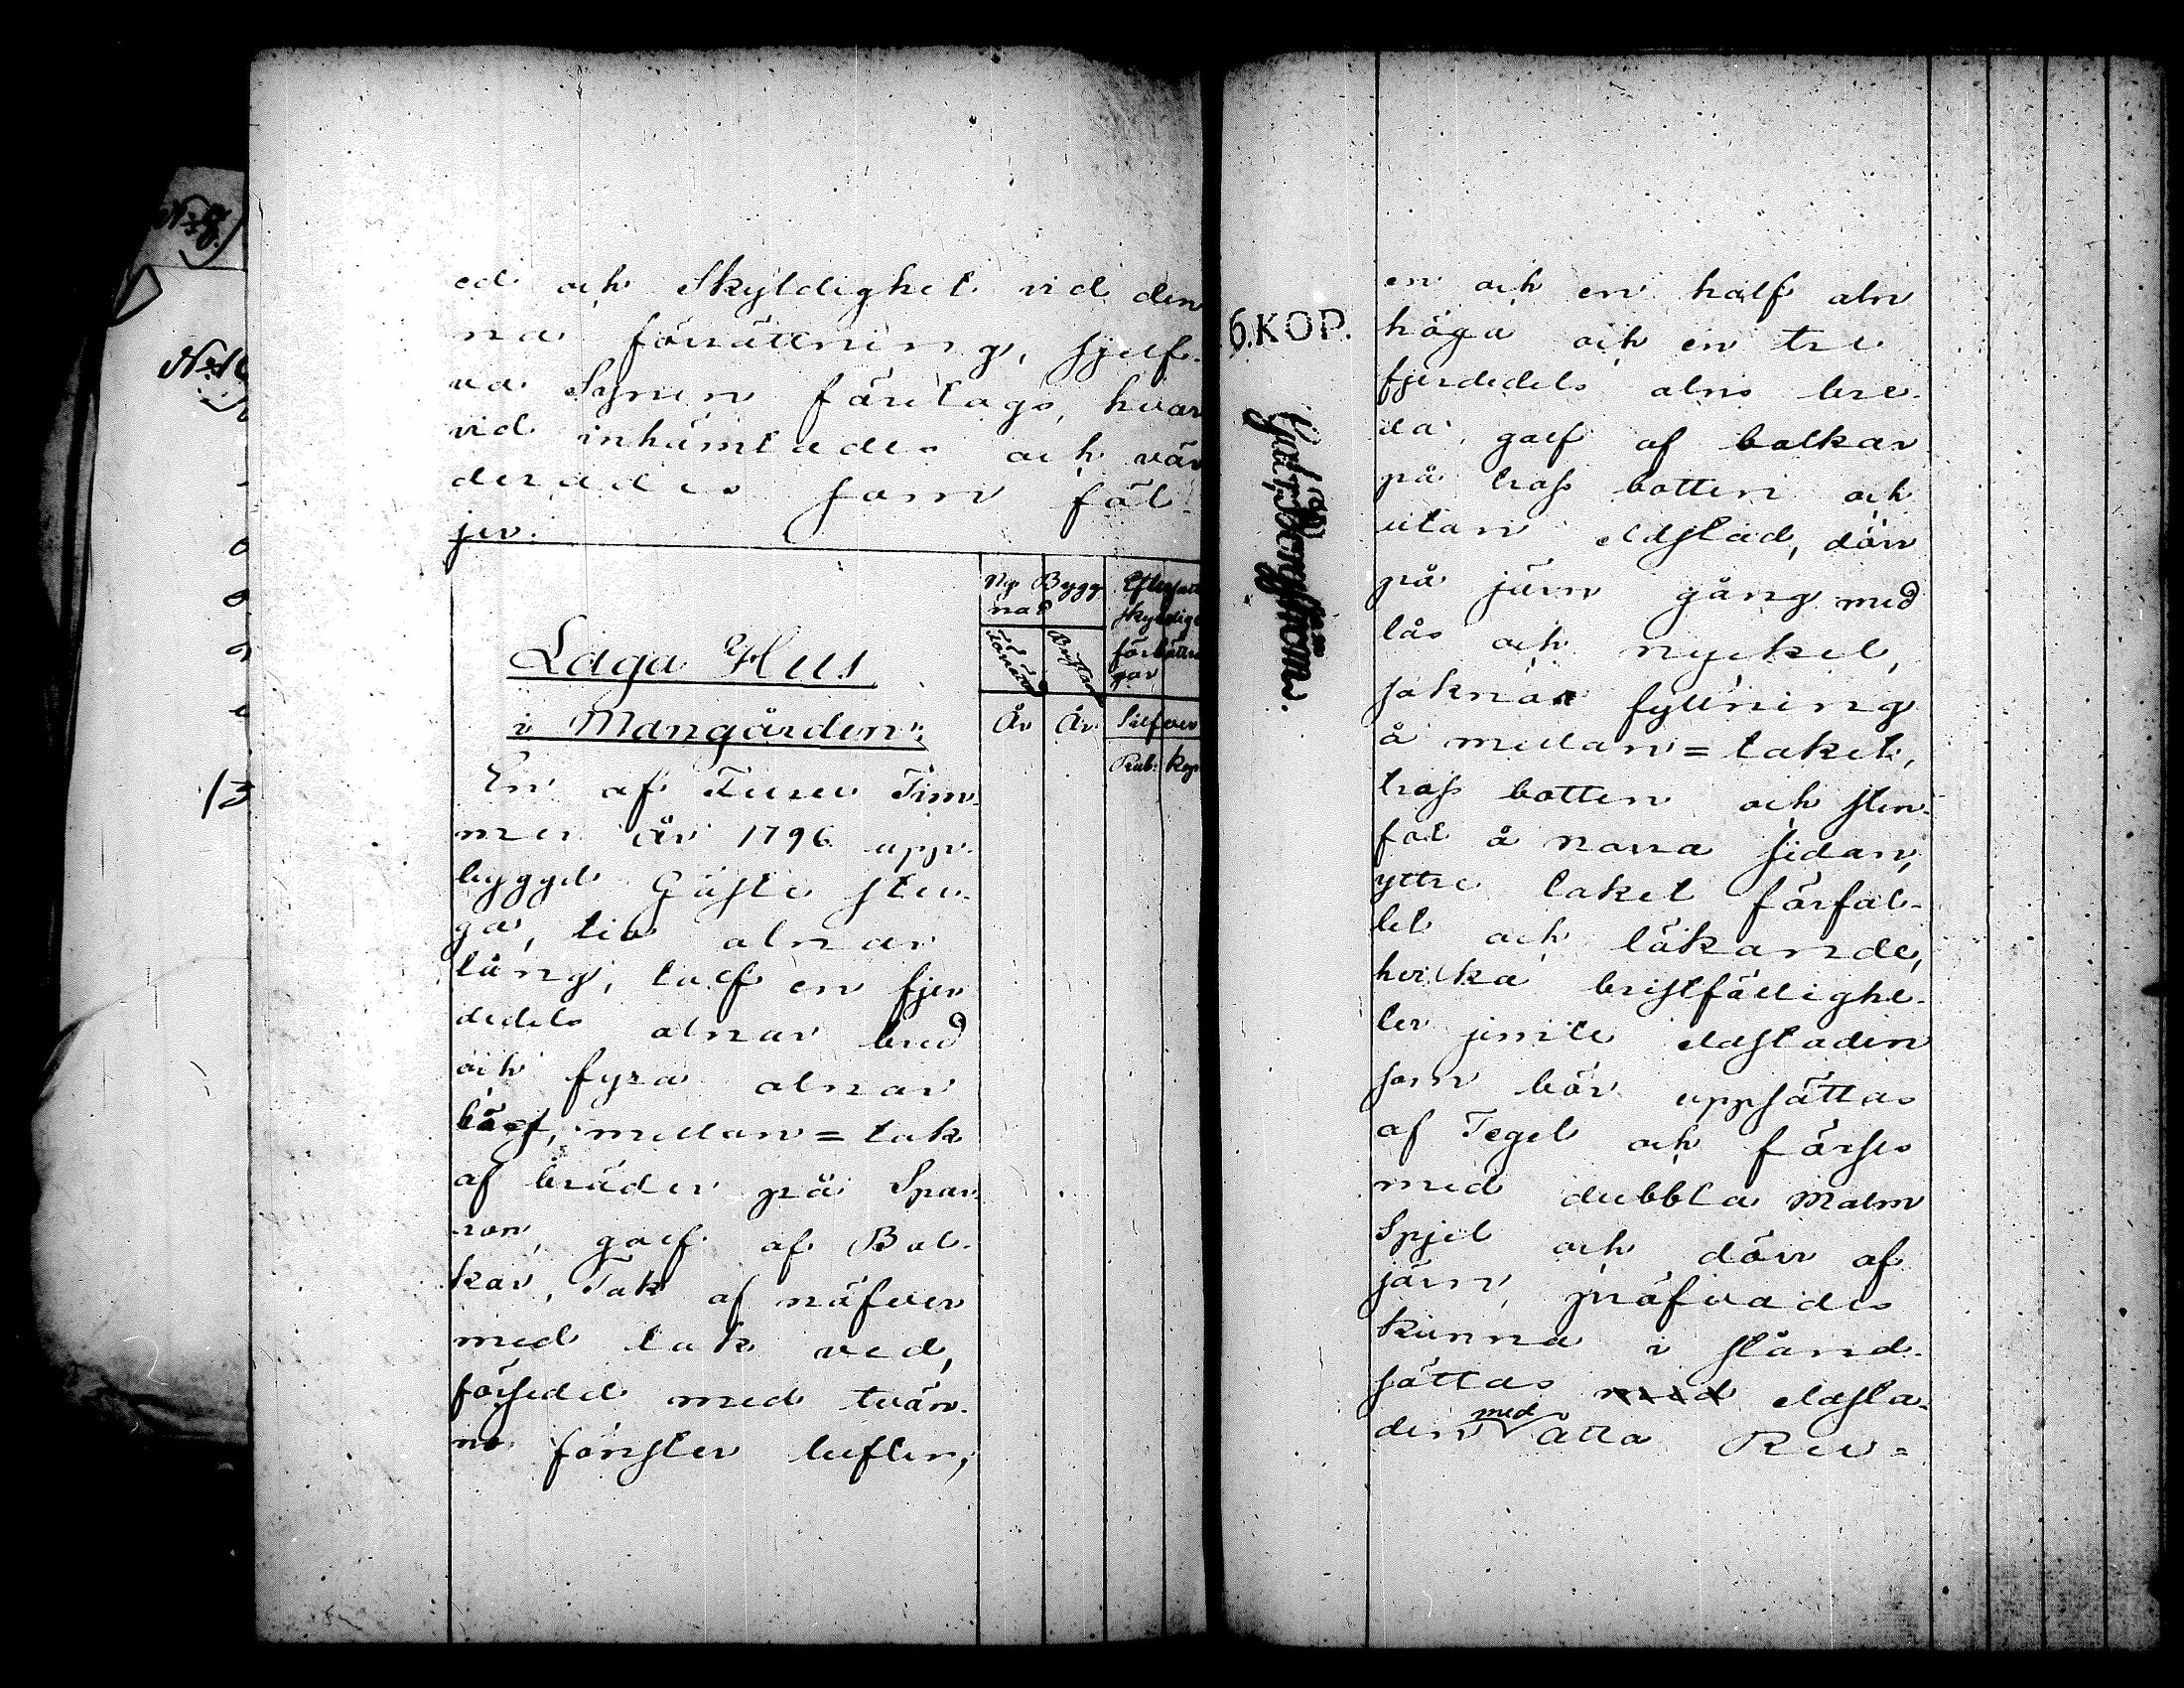 N:8.)
N:10
13
ed och Skyldighet vid den
na förrättning, sjelf-
va Synen företogs, hvar
vid inhämtades och vär
derades som föl-
jer.
Ny Bygg
nad
Eftersatt
skyldige
förbättrin
gar
Brister
Laga Hus
i Mangården:
År År Silfver
Rub. Kop.
En af Furu Tim-
mer År 1796 upp-
byggd Gäste stu-
ga, tio alnar
lång, tolf en fjer
dedels alnar bred
och fyra alnar
hög, mellan=tak
af bräder på Spar-
ror, golf af Bal-
kar, Tak af näfver
med tak ved,
försedd med tvän-
ne fönster lufter,
6.KOP.
en och en half aln
höga och en tre
fjerdedels alns bre-
da, golf af balkar
på tross botten och
utan eldstad, dörr
på järn gång med
lås och nyckel,
saknar fyllning
å mellan=taket,
tross botten och sten-
fot å norra sidan,
yttre taket förfal-
let och läkande,
hvilka bristfällighe-
ter jemte eldstaden
som bör uppsättas
af Tegel och förses
med dubbla Malm
Spjel och dörr af
järn, pröfvades
kunna i stånd-
sättas med eldsta-
den med åtta Ru=